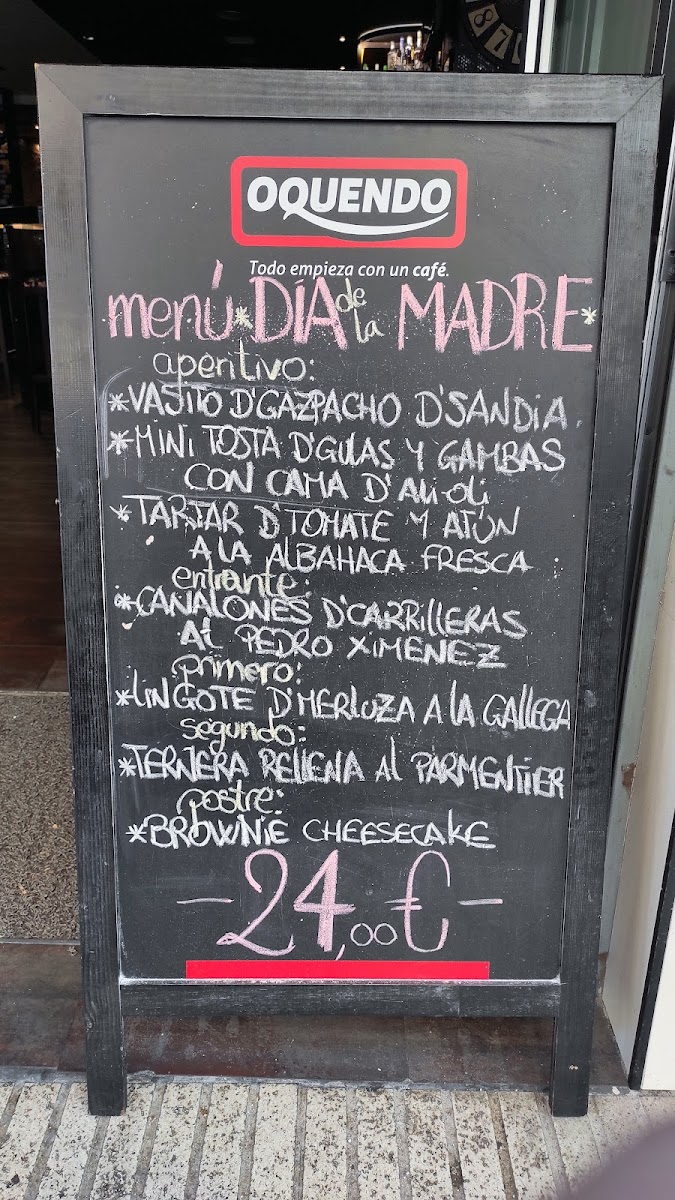 OQUENDO
Todo empieza con un café.
menú * DÍA de la MADRE *
aperitivo:
*VASITO D'GAZPACHO D'SANDIA.
*MINI TOSTA D'GULAS Y GAMBAS
CON CAMA D'ALI-OLI
*TARTAR D'TOMATE Y ATÚN
A LA ALBAHACA FRESCA
entrante:
*CANALONES D'CARRILLERAS
AL PEDRO XIMENEZ
primero:
*LINGOTE D'MERLUZA A LA GALLEGA
segundo:
*TERNERA RELLENA AL PARMENTIER
postre:
*BROWNIE CHEESECAKE
-24,00€-